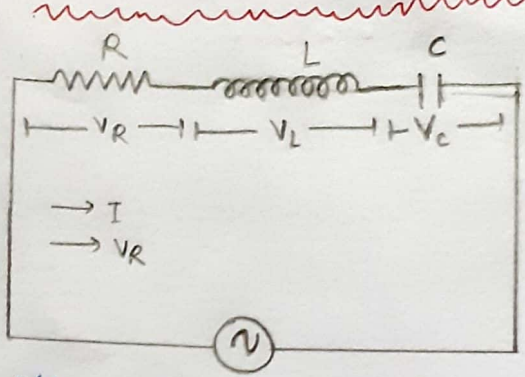 R L C
V_R V_L V_C
→ I
→ V_R
~